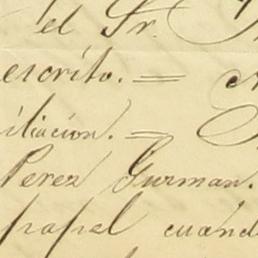 el Sr.
escrito. =
iliacion. =
Perez Guzman.
papel cuand